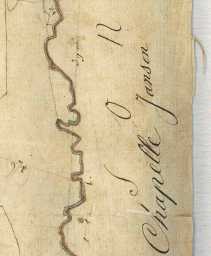 Chapelle Jansen
S O N